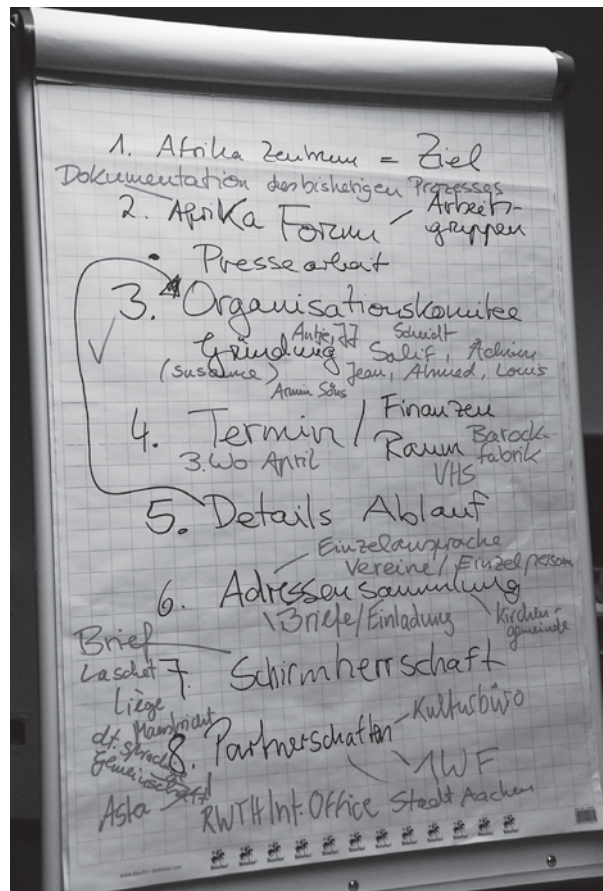 1. Afrika Zentrum = Ziel
Dokumentation des bisherigen Prozesses
2. Afrika Forum / Arbeits-
gruppen
• Pressearbeit
3. Organisationskomitee
Gründung Antje, JJ Schmidt
Salif, Achim
(Susanne) Jean, Ahmed, Louis
Armin
4. Termin / Finanzen
3. Wo April Raum Barock-
fabrik
VHS
5. Details Ablauf
Einzelansprache
Vereine / Einzelperson
6. Adressensammlung
Briefe / Einladung Kirchen-
gemeinde
Brief
Laschet 7. Schirmherrschaft
Liège
Maastricht Kulturbüro
dt. sprachige 8. Partnerschaften
gemeinschaft! 1WF
Asta RWTH Int. Office Stadt Aachen